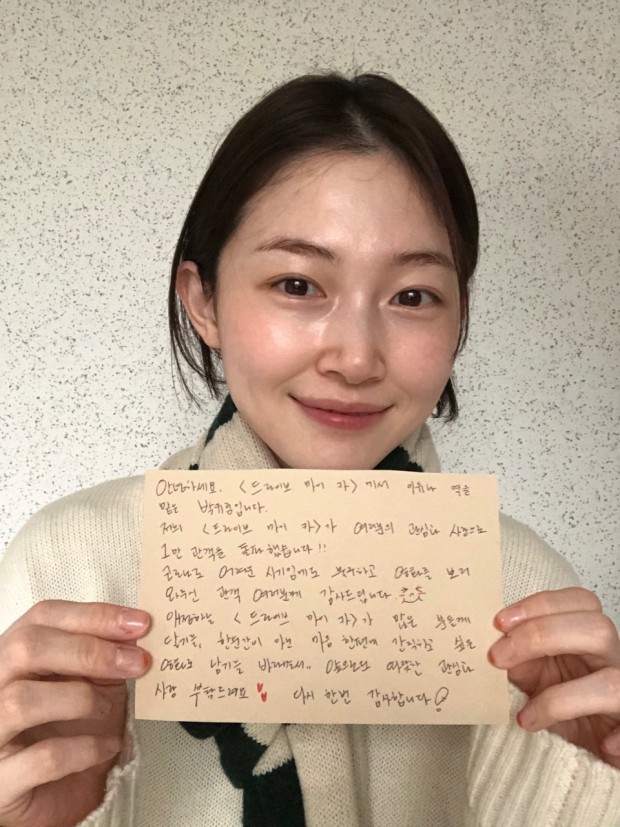 안녕하세요. <드라이브 마이 카>에서 이유나 역을
맡은 박유림입니다.
저희 <드라이브 마이 카>가 여러분의 관심과 사랑으로
1만 관객을 돌파했습니다!!
코로나로 어려운 시기임에도 불구하고 영화를 보러
와주신 관객 여러분께 감사드립니다
애정하는 <드라이브 마이 카>가 많은 분들께
닿기를, 한편간이 아닌 마음 한편에 간직하고 싶은
영화로 남기를 바라면서.. 앞으로도 따뜻한 관심과
사랑 부탁드려요 다시 한번 감사합니다